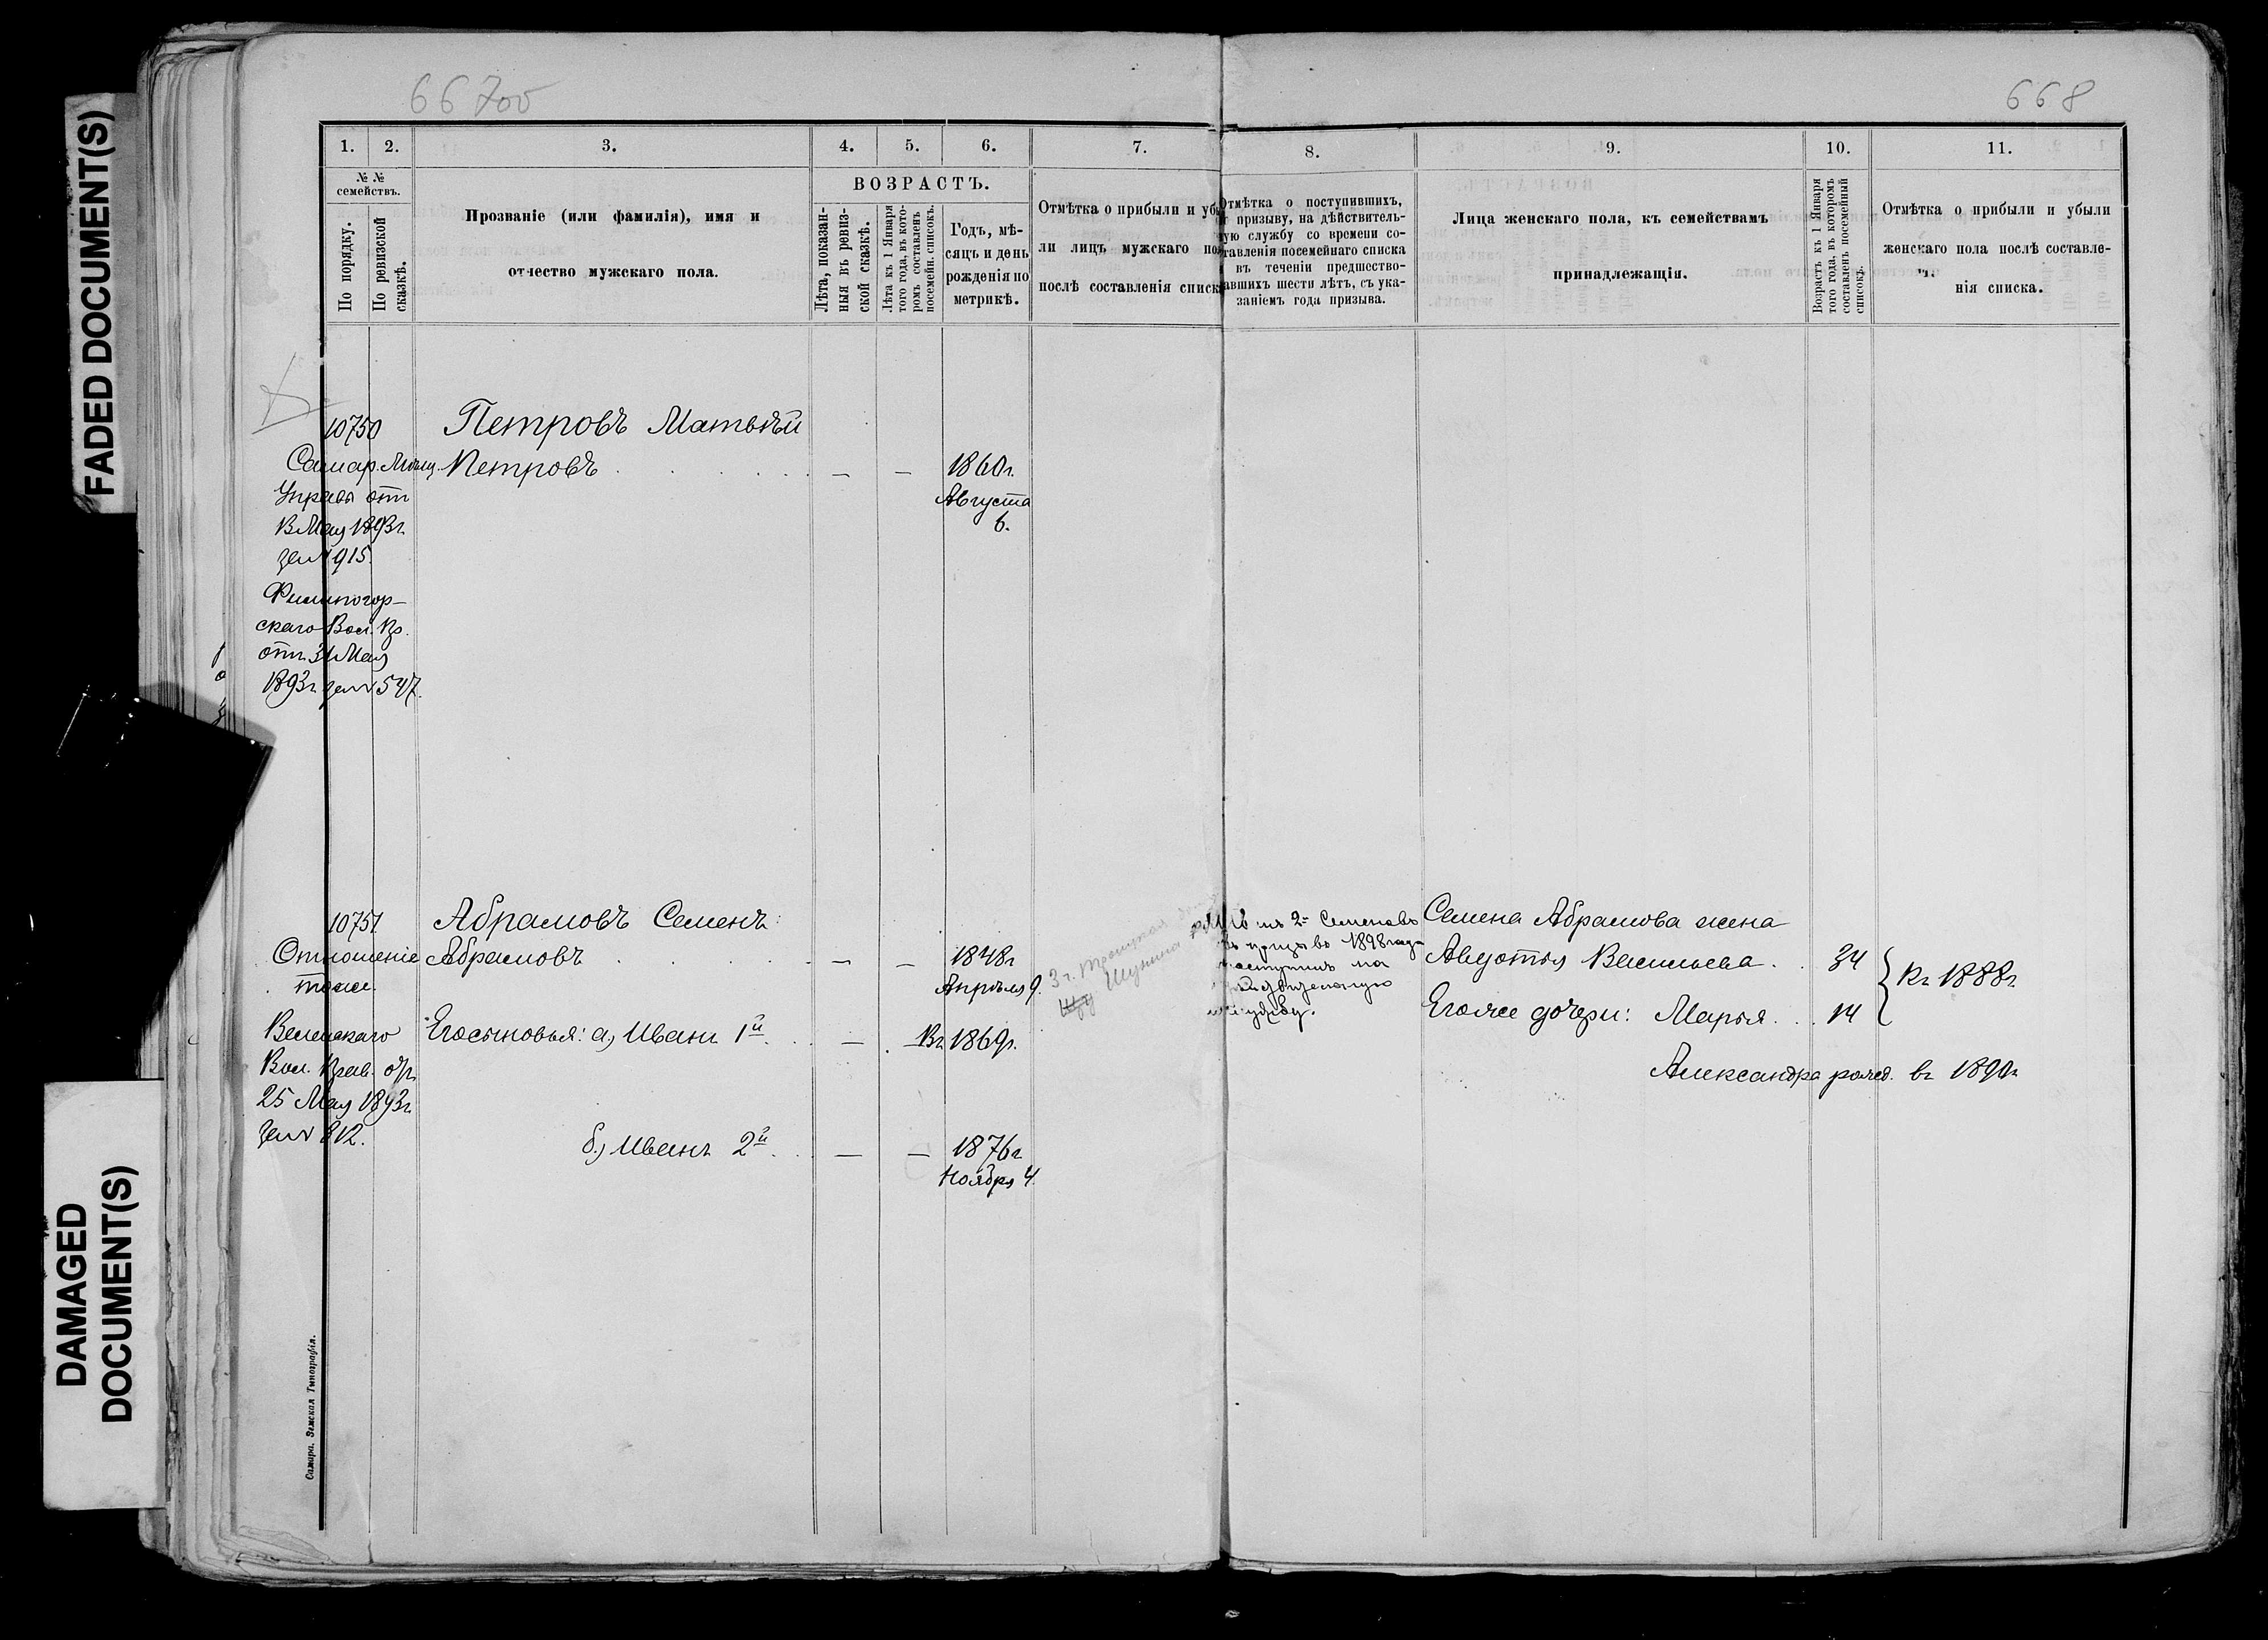 FADED DOCUMENT(S)
DAMAGED
DOCUMENT(S)
667об
668
1. 2. 3. 4. 5. 6. 7. 8. 9. 10. 11.
№ №
семействъ.
По порядку.
По ревизской
сказкѣ.
Прозваніе (или фамилія), имя и
отчество мужскаго пола.
ВОЗРАСТЪ.
Лѣта, показан-
ныя въ ревиз-
ской сказкѣ.
Лѣта къ 1 Января
того года, въ кото-
ромъ составленъ
посемейн. списокъ.
Годъ, мѣ-
сяцъ и день
рожденія по
метрикѣ.
Отмѣтка о прибыли и убы
ли лицъ мужскаго пола
послѣ составленія списка
Отмѣтка о поступившихъ,
призыву, на дѣйствитель-
ную службу со времени со-
ставленія посемейнаго списка
въ теченіи предшество-
вавшихъ шести лѣтъ, съ ука-
заніемъ года призыва.
Лица женскаго пола, къ семействамъ
принадлежащія.
Возрастъ къ 1 Января
того года, въ которомъ
составленъ посемейный
списокъ.
Отмѣтка о прибыли и убыли
женскаго пола послѣ составле-
нія списка.
10750 Петровъ Матвѣй
Самар. Мѣщ. Петровъ — — 1860г.
Управы отъ Августа
Мая 1893г. 6.
за № 915.
скаго Вол. Пр.
отъ 31 Мая
1893г. за № 547.
10751 Абрамовъ Семенъ
Отношеніе Абрамовъ — — 1848г.
тоже. Апрѣля 9.
3 г. Троицкая
Шунина
2й Семеновъ
призыва 1898 года
поступилъ на
дѣйствительную
службу.
Семена Абрамова жена
Авдотья Васильева . . 34
Его же дочери: Марья . . 14
Къ 1888г.
Александра рожд. въ 1890г.
Его сыновья: а) Иванъ 1й . . — . — Въ 1869г.
Вол. Прав. отъ
25 Мая 1893г.
за № 812.
б) Иванъ 2й . . — — 1876г.
Ноября 4.
Самара. Земская Типографія.